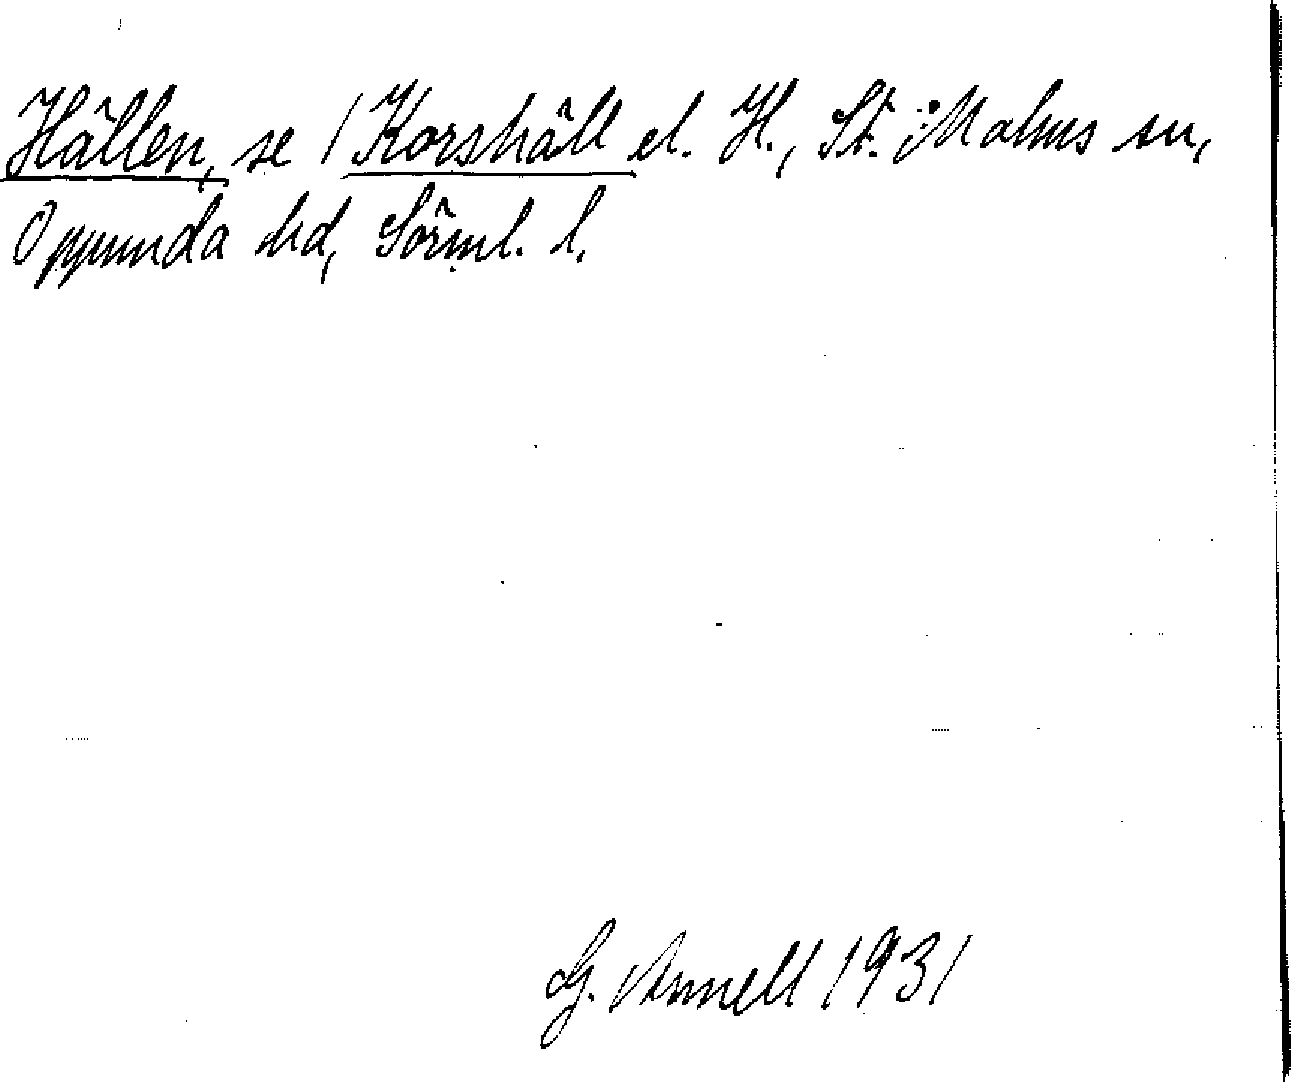 Hällen, se / Korshäll el. H., St. Malms sn,
Oppunda hd, Sörml. l.
G. Annell 1931